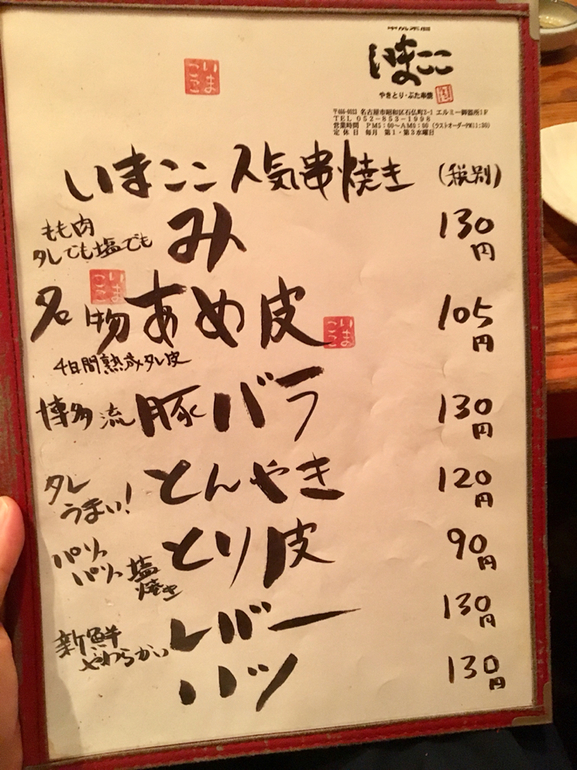 いまここ
いまここ
やきとり・ぶた串焼
TEL 052-853-1998
営業時間 PM5:00~AM0:00(ラストオーダーPM11:30)
定休日 毎月 第1・第3水曜日
いまここ人気串焼き (税別)
もも肉
タレでも塩でも
み 130円
いまここ
名物あめ皮 105円
いまここ
4日間熟成タレ皮
博多流 豚バラ 130円
タレ
うまい!
とんやき 120円
パリッ
パリッ 塩焼き
とり皮 90円
新鮮
やわらかい
レバー 130円
ハツ 130円